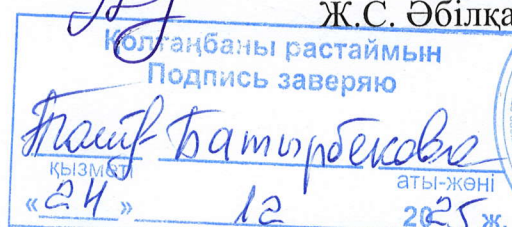 Ж.С. Әбілқа
Қолтаңбаны растаймын
Подпись заверяю
Батырбекова
қызметі аты-жөні
«24» 12 2025 ж.